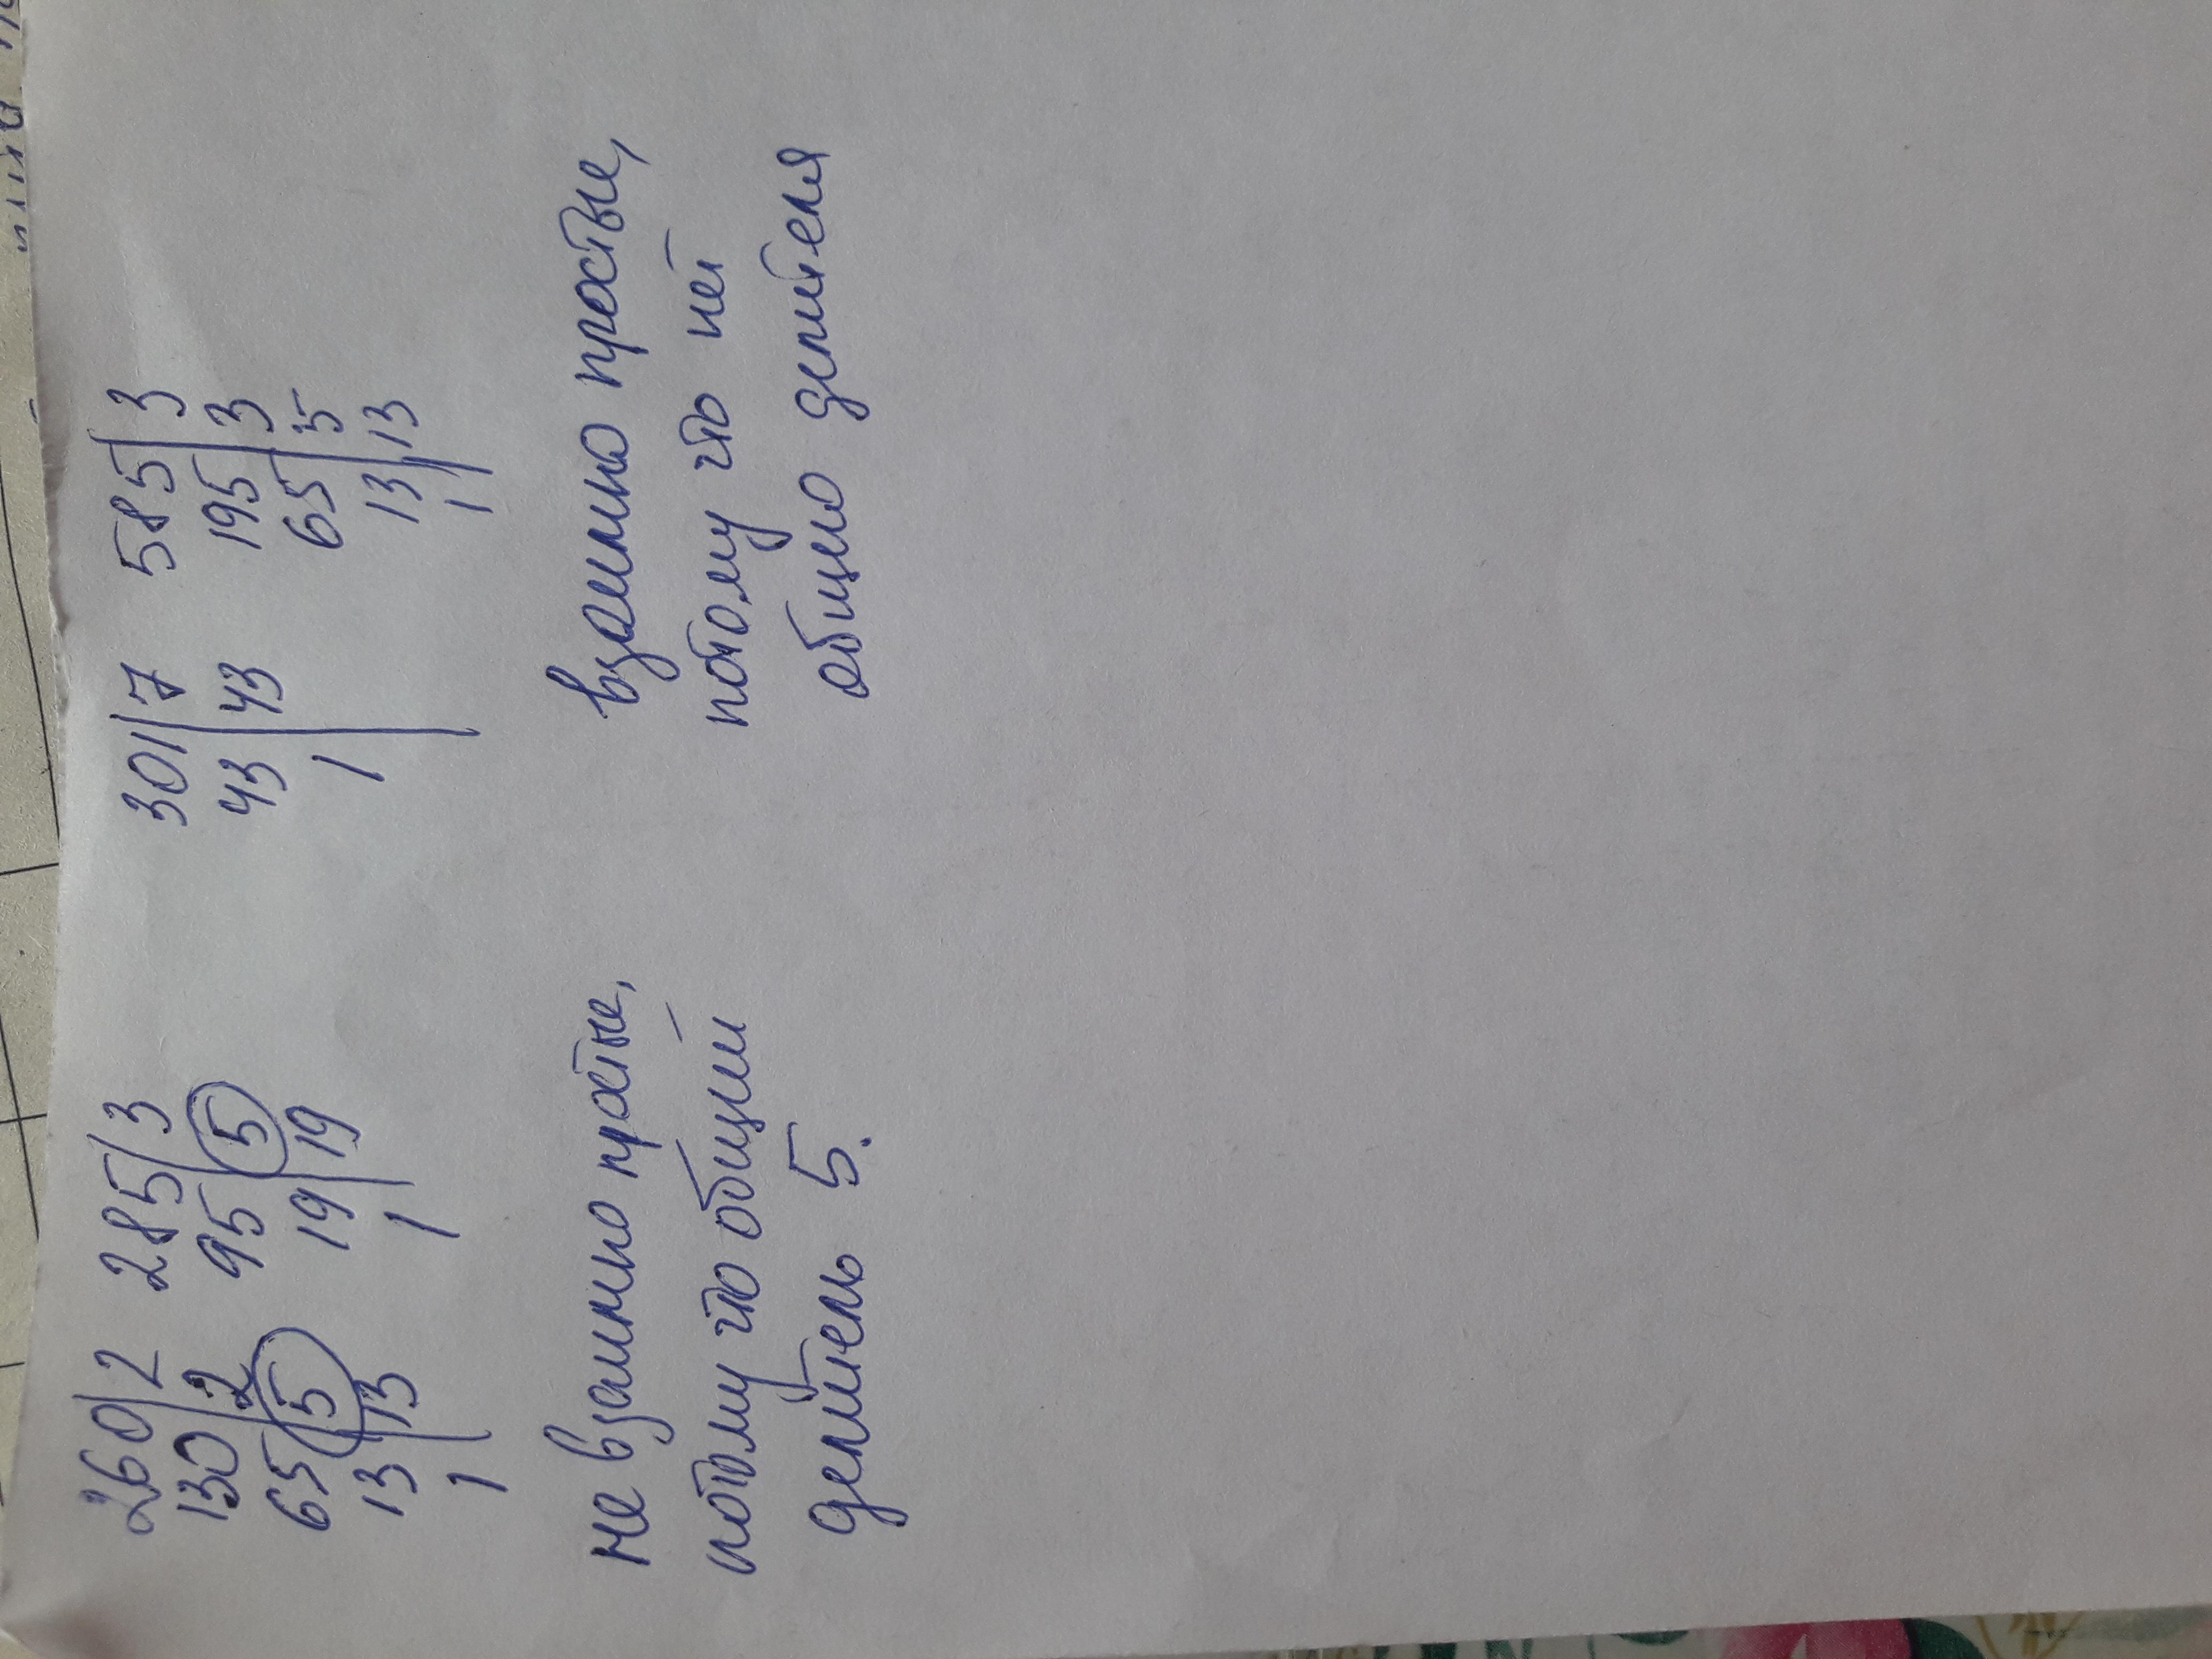 260 2 285 3 301 7 585 3
130 2 95 5 43 43 195 3
65 5 19 19 1 65 5
13 13 1 13 13
1 1
не взаимно простые,
потому что общий
делитель 5.
взаимно простые,
потому что нет
общего делителя